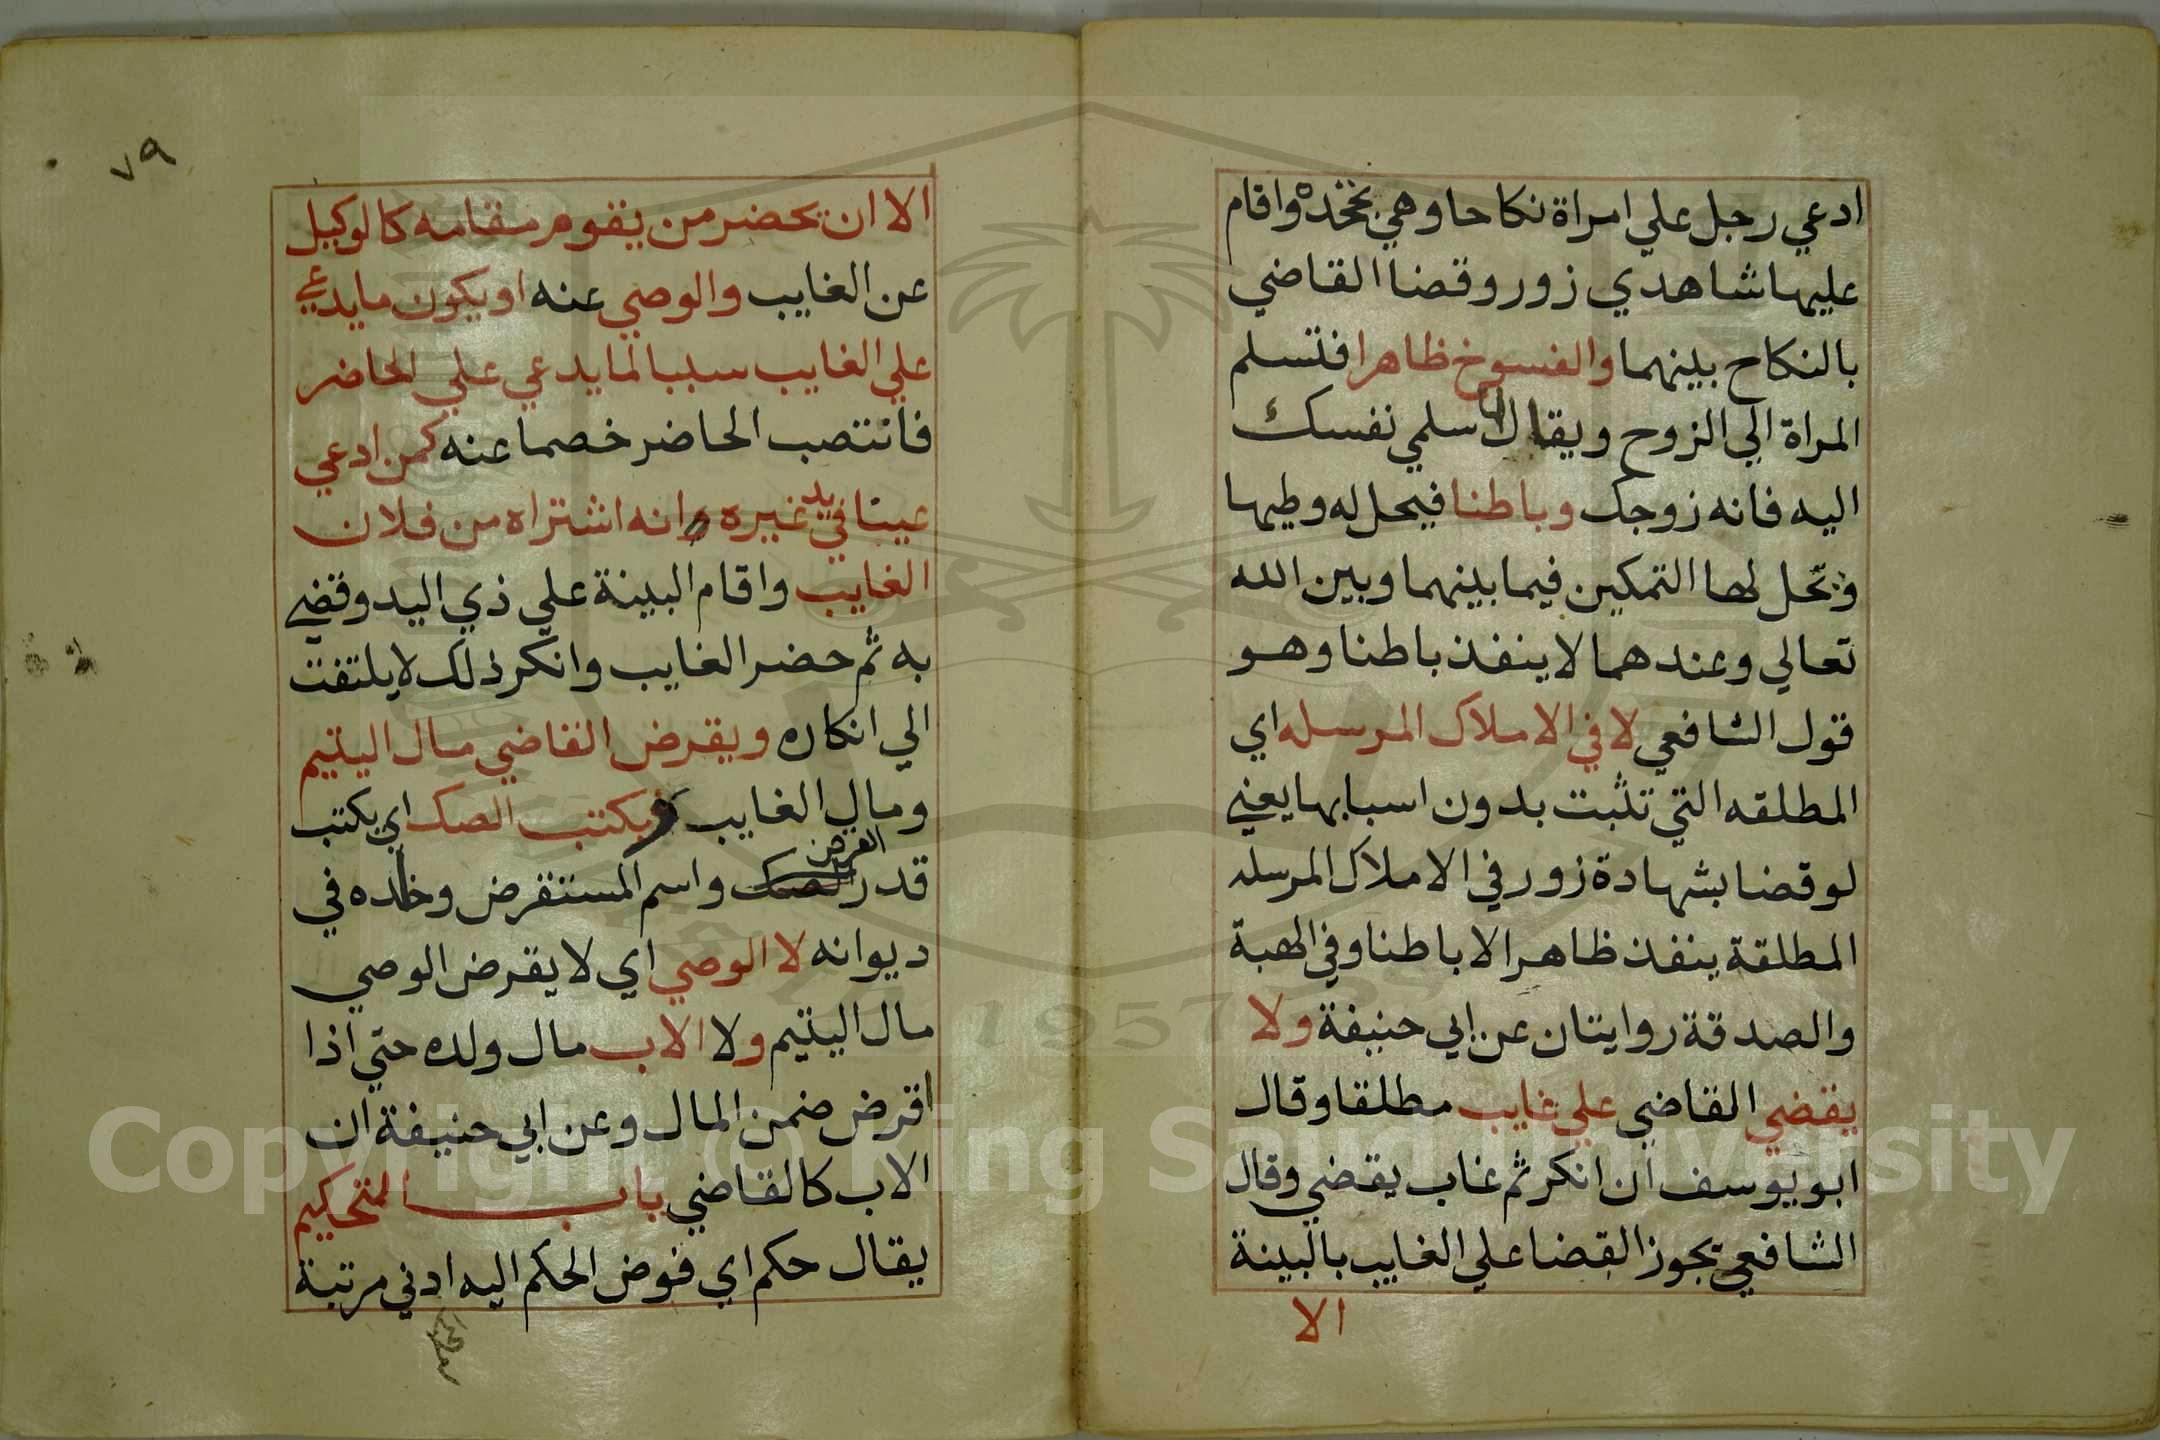 ادعي رجل علي امراة نكاحا وهي تجحده واقام
عليها شاهدي زور وقضا القاضي
بالنكاح بينهما والفسوخ ظاهرا فتسلم
المراة الي الزوج ويقال لها سلمي نفسك
اليه فانه زوجك وباطنا فيحل له وطيها
ويحل لها التمكين فيما بينهما وبين الله
تعالي وعندهما لا ينفذ باطنا وهو
قول الشافعي لا في الاملاك المرسله اي
المطلقه التي تثبت بدون اسبابها يعني
لو قضا بشهادة زور في الاملاك المرسله
المطلقة ينفذ ظاهرا لا باطنا وفي الهبة
والصدقة روايتان عن ابي حنيفة ولا
يقضي القاضي علي غايب مطلقا وقال
ابو يوسف ان انكر ثم غاب يقضي وقال
الشافعي يجوز القضا علي الغايب بالبينة
الا
٧٩
الا ان يحضر من يقوم مقامه كالوكيل
عن الغايب والوصي عنه او يكون ما يدعي
علي الغايب سببا لما يدعي علي الحاضر
فانتصب الحاضر خصما عنه كمن ادعي
عينا في يد غيره انه اشتراه من فلان
الغايب واقام البينة علي ذي اليد وقضي
به ثم حضر الغايب وانكر ذلك لا يلتفت
الي انكاره ويقرض القاضي مال اليتيم
ومال الغايب ويكتب الصك اي يكتب
قدر القرض واسم المستقرض وخلده في
ديوانه لا الوصي اي لا يقرض الوصي
مال اليتيم ولا الاب مال ولده حتي اذا
اقرض ضمن المال وعن ابي حنيفة ان
الاب كالقاضي باب التحكيم
يقال حكم اي فوض الحكم اليه ادني مرتبة
Copyright © King Saud University
1957